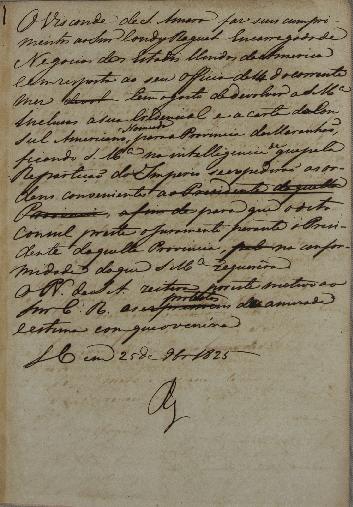 O Visconde de S. Amaro faz seus cumpri-
mentos ao Snr Condy Raguet Encarregado de
Negocios dos Estados Unidos da America
e em resposta ao seu Officio de 4 do corrente
mez tem o gosto de devolver a S. Mce
inclusas a sua Credencial e a carta do Con-
sul Americano Nomeado para a Provincia do Maranhão,
ficando S. Mce na intelligencia de q pela
Repartição do Imperio se expedirão as or-
dens convenientes ao Presidente daquella
Provincia, a fim de para que o dito
Consul preste o juramento perante o Presi-
dente daquella Provincia, na confor-
midade do que S. Mce requereu
O V. de S. A. reitera por este motivo ao
Snr C. R. as protestos da
e estima com que o venera
em 25 de 9bro 1825